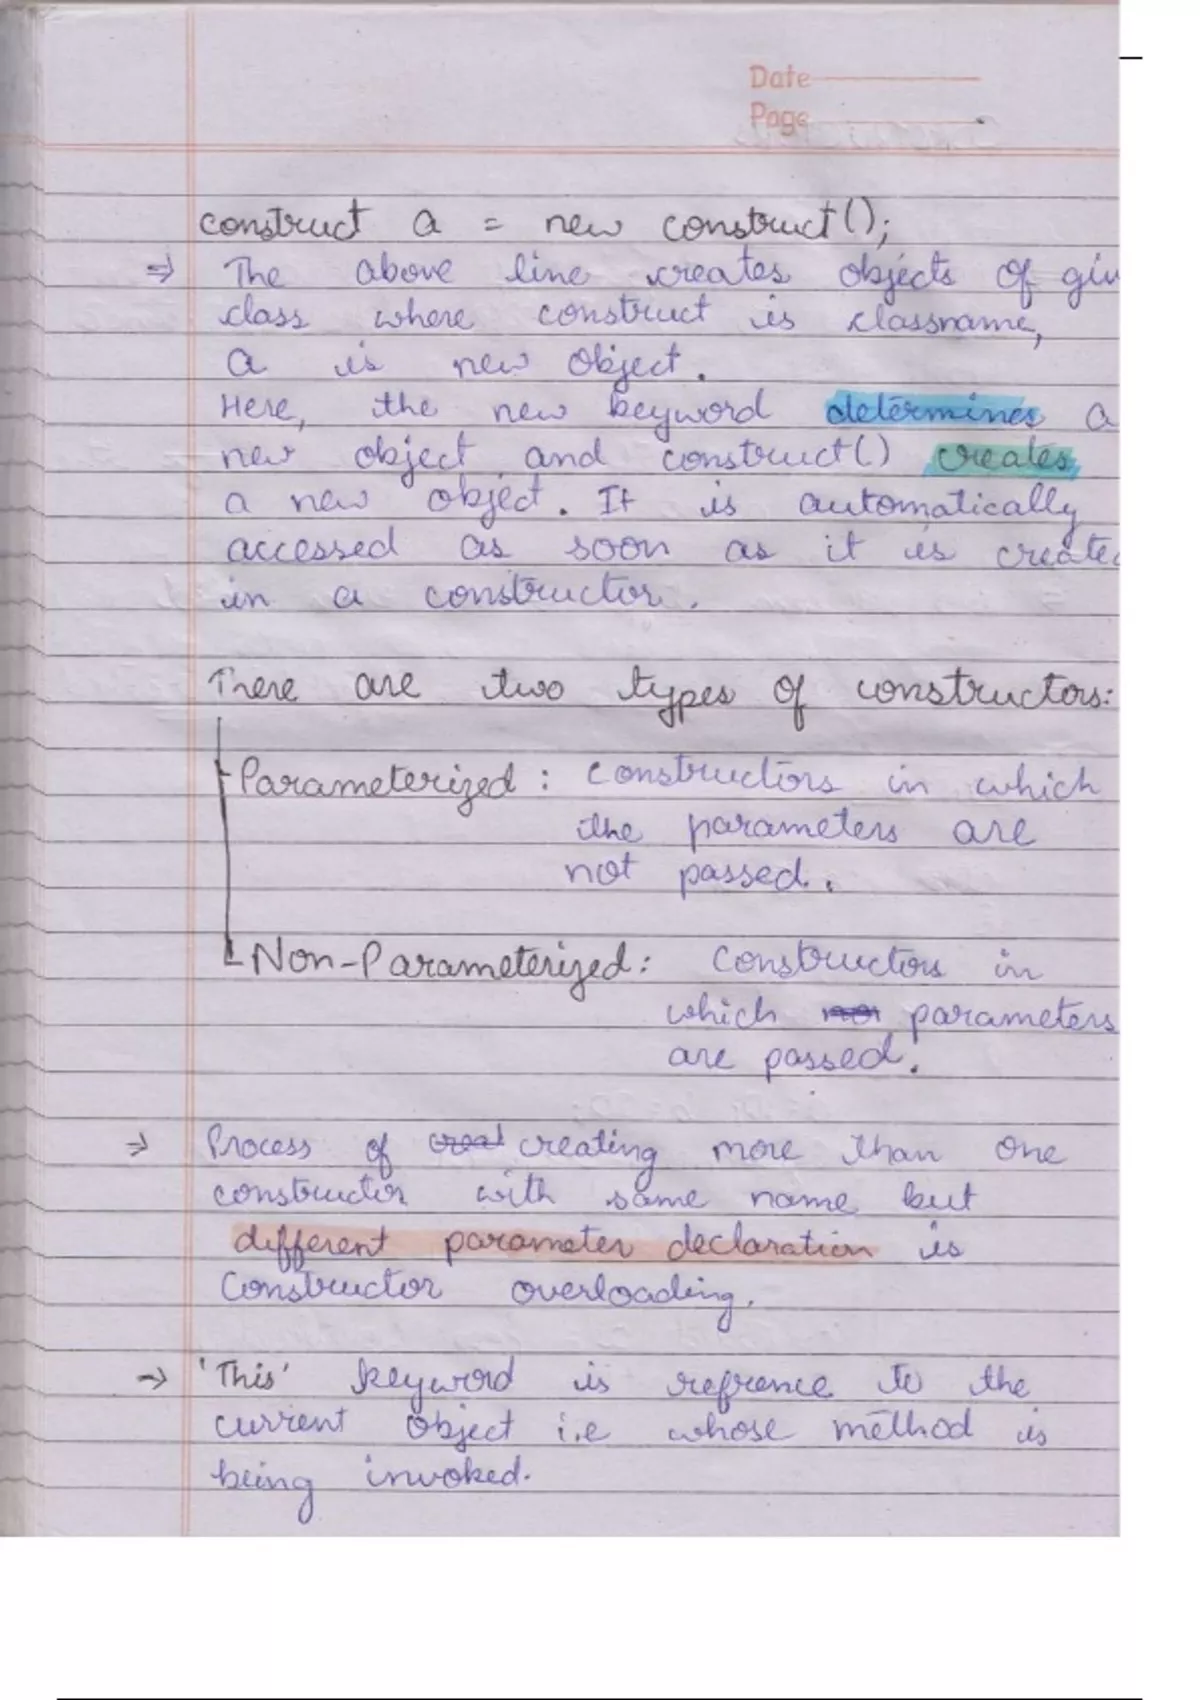 Date
Page
construct a = new construct();
⇒ The above line creates objects of giv
class where construct is classname,
a is new object.
Here, the new keyword determines a
new object and construct() creates
a new object. It is automatically
accessed as soon as it is create
in a constructor.
There are two types of constructors:
Parameterized: Constructors in which
the parameters are
not passed.
Non-Parameterized: Constructors in
which not parameters
are passed.
⇒ Process of creat creating more than one
constructor with same name but
different parameter declaration is
Constructor overloading.
→ 'This' keyword is refrence to the
current object i.e whose method is
being invoked.